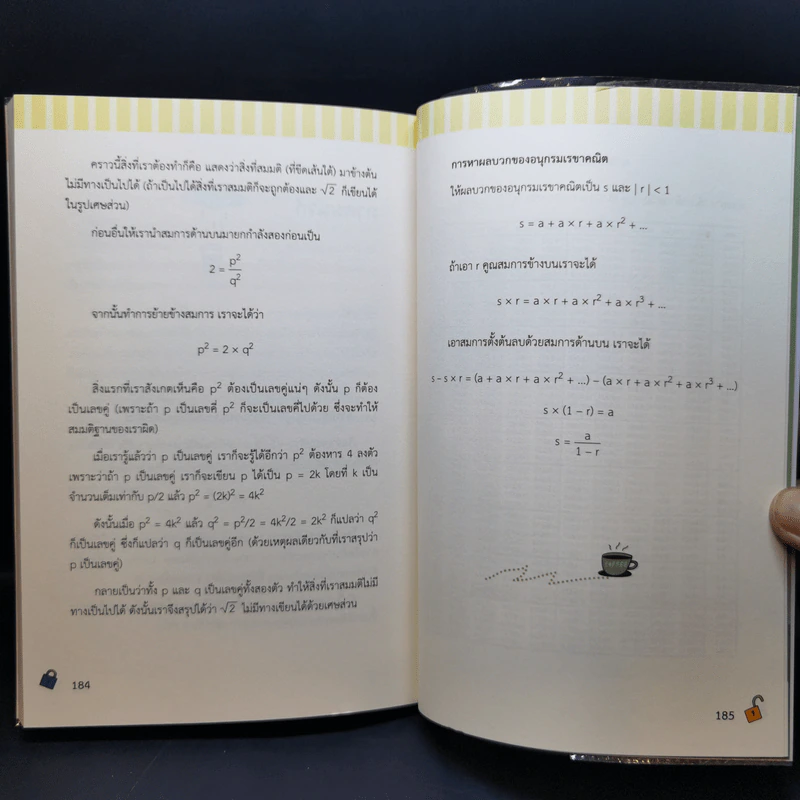 คราวนี้สิ่งที่เราต้องทำก็คือ แสดงว่าสิ่งที่สมมติ (ที่ขีดเส้นใต้) มาข้างต้น
ไม่มีทางเป็นไปได้ (ถ้าเป็นไปได้สิ่งที่เราสมมติก็จะถูกต้องและ √2 ก็เขียนได้
ในรูปเศษส่วน)
ก่อนอื่นให้เรานำสมการด้านบนมายกกำลังสองก่อนเป็น
2 = p²/q²
จากนั้นทำการย้ายข้างสมการ เราจะได้ว่า
p² = 2 × q²
สิ่งแรกที่เราสังเกตเห็นคือ p² ต้องเป็นเลขคู่แน่ๆ ดังนั้น p ก็ต้อง
เป็นเลขคู่ (เพราะถ้า p เป็นเลขคี่ p² ก็จะเป็นเลขคี่ไปด้วย ซึ่งจะทำให้
สมมติฐานของเราผิด)
เมื่อเรารู้แล้วว่า p เป็นเลขคู่ เราก็จะรู้ได้อีกว่า p² ต้องหาร 4 ลงตัว
เพราะว่าถ้า p เป็นเลขคู่ เราก็จะเขียน p ได้เป็น p = 2k โดยที่ k เป็น
จำนวนเต็มเท่ากับ p/2 แล้ว p² = (2k)² = 4k²
ดังนั้นเมื่อ p² = 4k² แล้ว q² = p²/2 = 4k²/2 = 2k² ก็แปลว่า q²
ก็เป็นเลขคู่ ซึ่งก็แปลว่า q ก็เป็นเลขคู่อีก (ด้วยเหตุผลเดียวกับที่เราสรุปว่า
p เป็นเลขคู่)
กลายเป็นว่าทั้ง p และ q เป็นเลขคู่ทั้งสองตัว ทำให้สิ่งที่เราสมมติไม่มี
ทางเป็นไปได้ ดังนั้นเราจึงสรุปได้ว่า √2 ไม่มีทางเขียนได้ด้วยเศษส่วน
184
การหาผลบวกของอนุกรมเรขาคณิต
ให้ผลบวกของอนุกรมเรขาคณิตเป็น s และ | r | < 1
s = a + a × r + a × r² + ...
ถ้าเอา r คูณสมการข้างบนเราจะได้
s × r = a × r + a × r² + a × r³ + ...
เอาสมการตั้งต้นลบด้วยสมการด้านบน เราจะได้
s – s × r = (a + a × r + a × r² + ...) – (a × r + a × r² + a × r³ + ...)
s × (1 – r) = a
s = a/(1 – r)
185